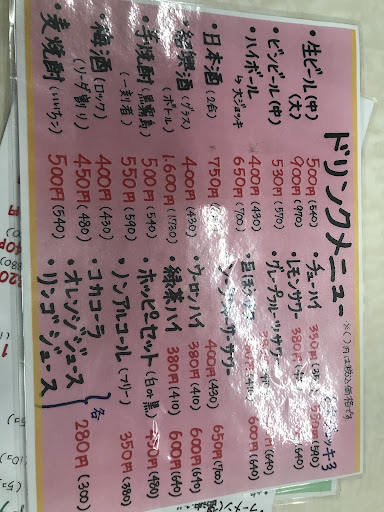 ドリンクメニュー
※( )内は税込価格です
・生ビール(中) 500円(540)
(大) 900円(970)
・ビンビール(中) 530円(570)
・ハイボール 400円(430)
↳大ジョッキ 650円(700)
・日本酒(2合) 750円
・紹興酒(グラス) 400円(430)
(ボトル) 1,600円(1730)
・芋焼酎(黒霧島) 500円(540)
(一刻者) 550円(590)
・梅酒(ロック) 400円(430)
(ソーダ割り) 450円(480)
・麦焼酎(いいちこ) 500円(540)
・チューハイ 350円 550円(590)
・レモンサワー 380円 (640)
・グレープフルーツサワー (640)
・巨峰サワー 600円(640)
サワー 400円(430) 650円(700)
・ウーロンハイ 380円(410) 600円(640)
・緑茶ハイ 380円(410) 600円(640)
・ホッピーセット(白or黒) 450円(480)
・ノンアルコール(フリー) 350円(380)
・コカコーラ
・オレンジジュース 各 280円(300)
・リンゴジュース